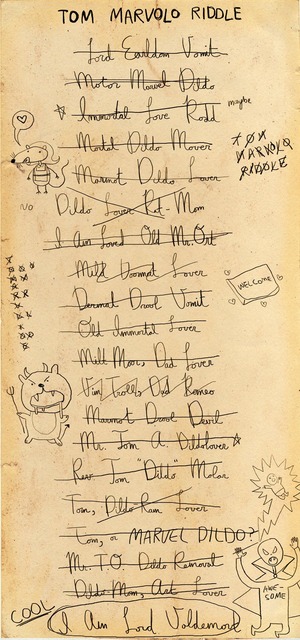 TOM MARVOLO RIDDLE
Lord Earldom Vomit
Motor Marvel Dildo
Immortal Love Rodd
maybe
Mortal Dildo Mover
TOM
MARVOLO
RIDDLE
Marmot Dildo Lover
NO
Dildo Lover Rot-Mom
I Am Loved Old Mr. Ort
Mild Doormat Lover
WELCOME
Dermal Drool Vomit
Old Immortal Lover
Mill Moor, Dad Lover
Vim Troll, Dad Romeo
Marmot Drool Devil
Mr. Tom A. Dildolover
Rev. Tom "Dildo" Molar
Tom, Dildo Ram Lover
Tom, or MARVEL DILDO?
Mr. T.O. Dildo Removal
Dildo Mom, Art Lover
AWE-
SOME
COOL
I Am Lord Voldemort